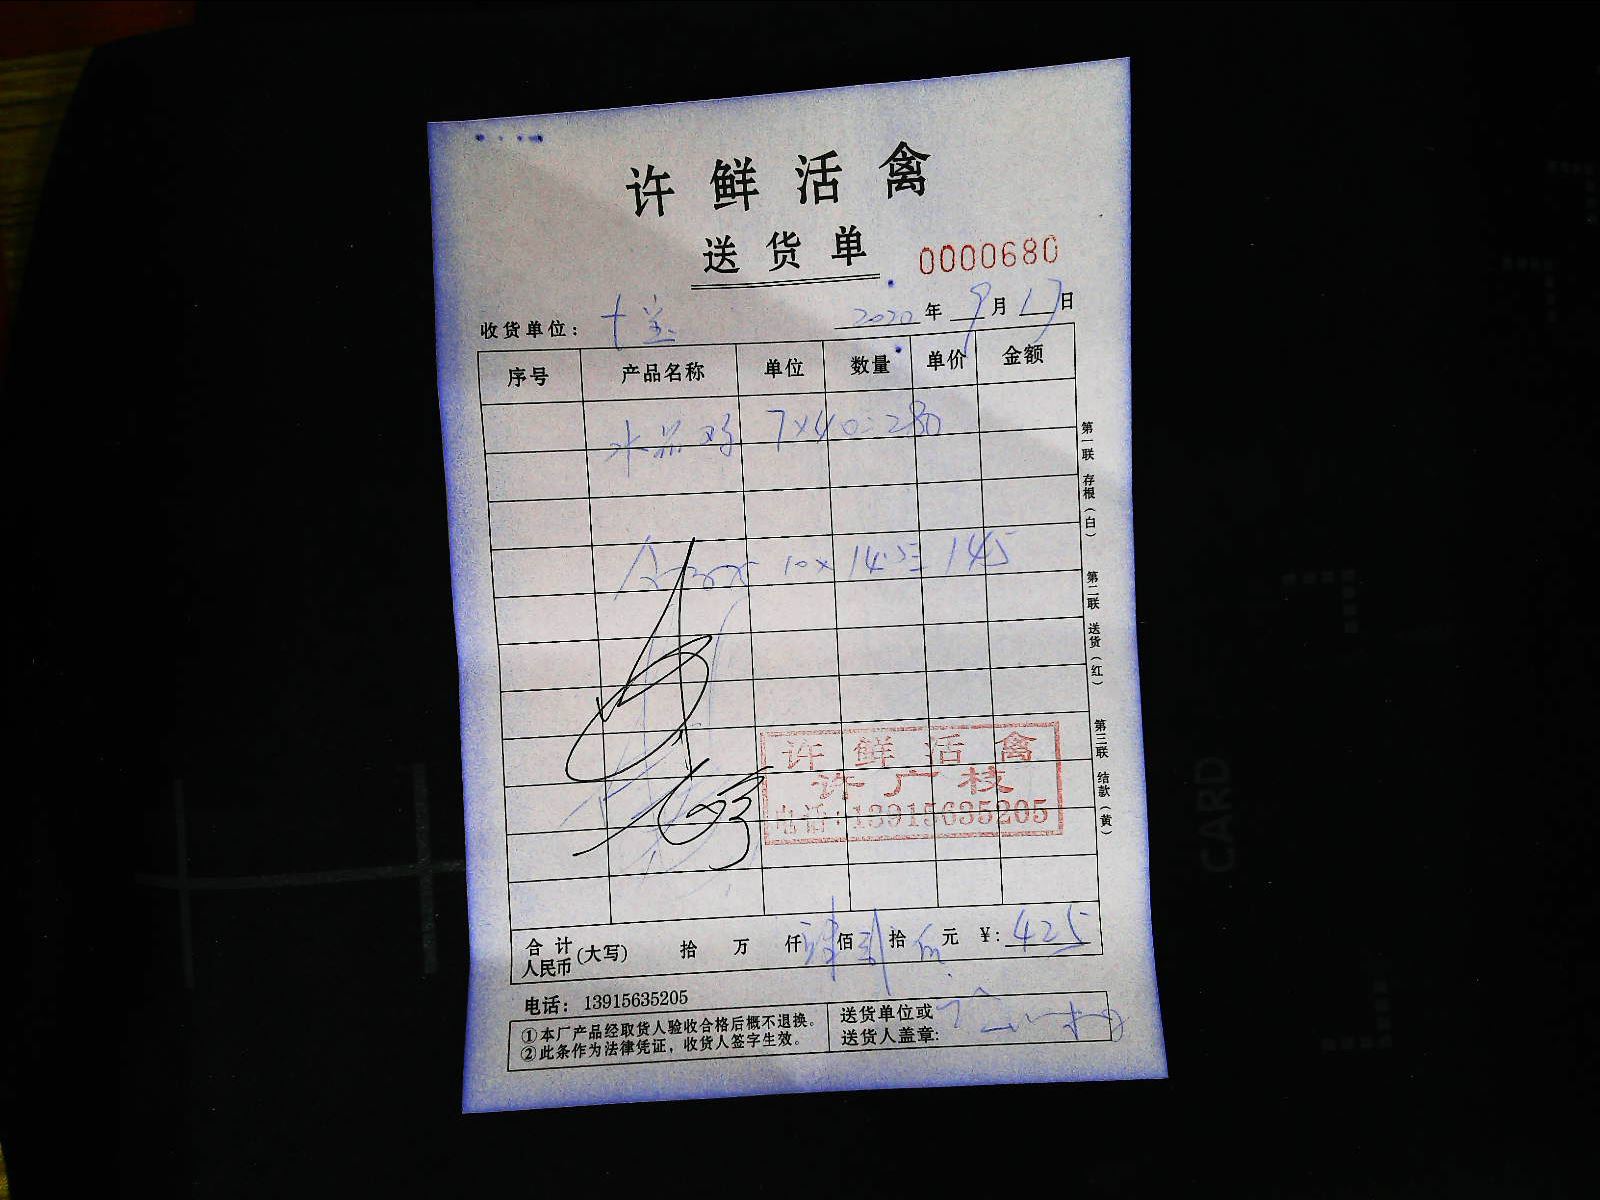 许鲜活禽
送货单
0000680
收货单位: 十宝 2020年9月17日
序号 产品名称 单位 数量 单价 金额
水晶鸡 7×40=280
10×14.5=145
第一联 存根(白)
第二联 送货(红)
第三联 结款(黄)
许鲜活禽
许广枝
电话:13915635205
合计人民币(大写) 拾 万 仟肆佰贰拾伍元 ¥:425
电话: 13915635205
①本厂产品经取货人验收合格后概不退换。
②此条作为法律凭证,收货人签字生效。
送货单位或
送货人盖章:
CARD